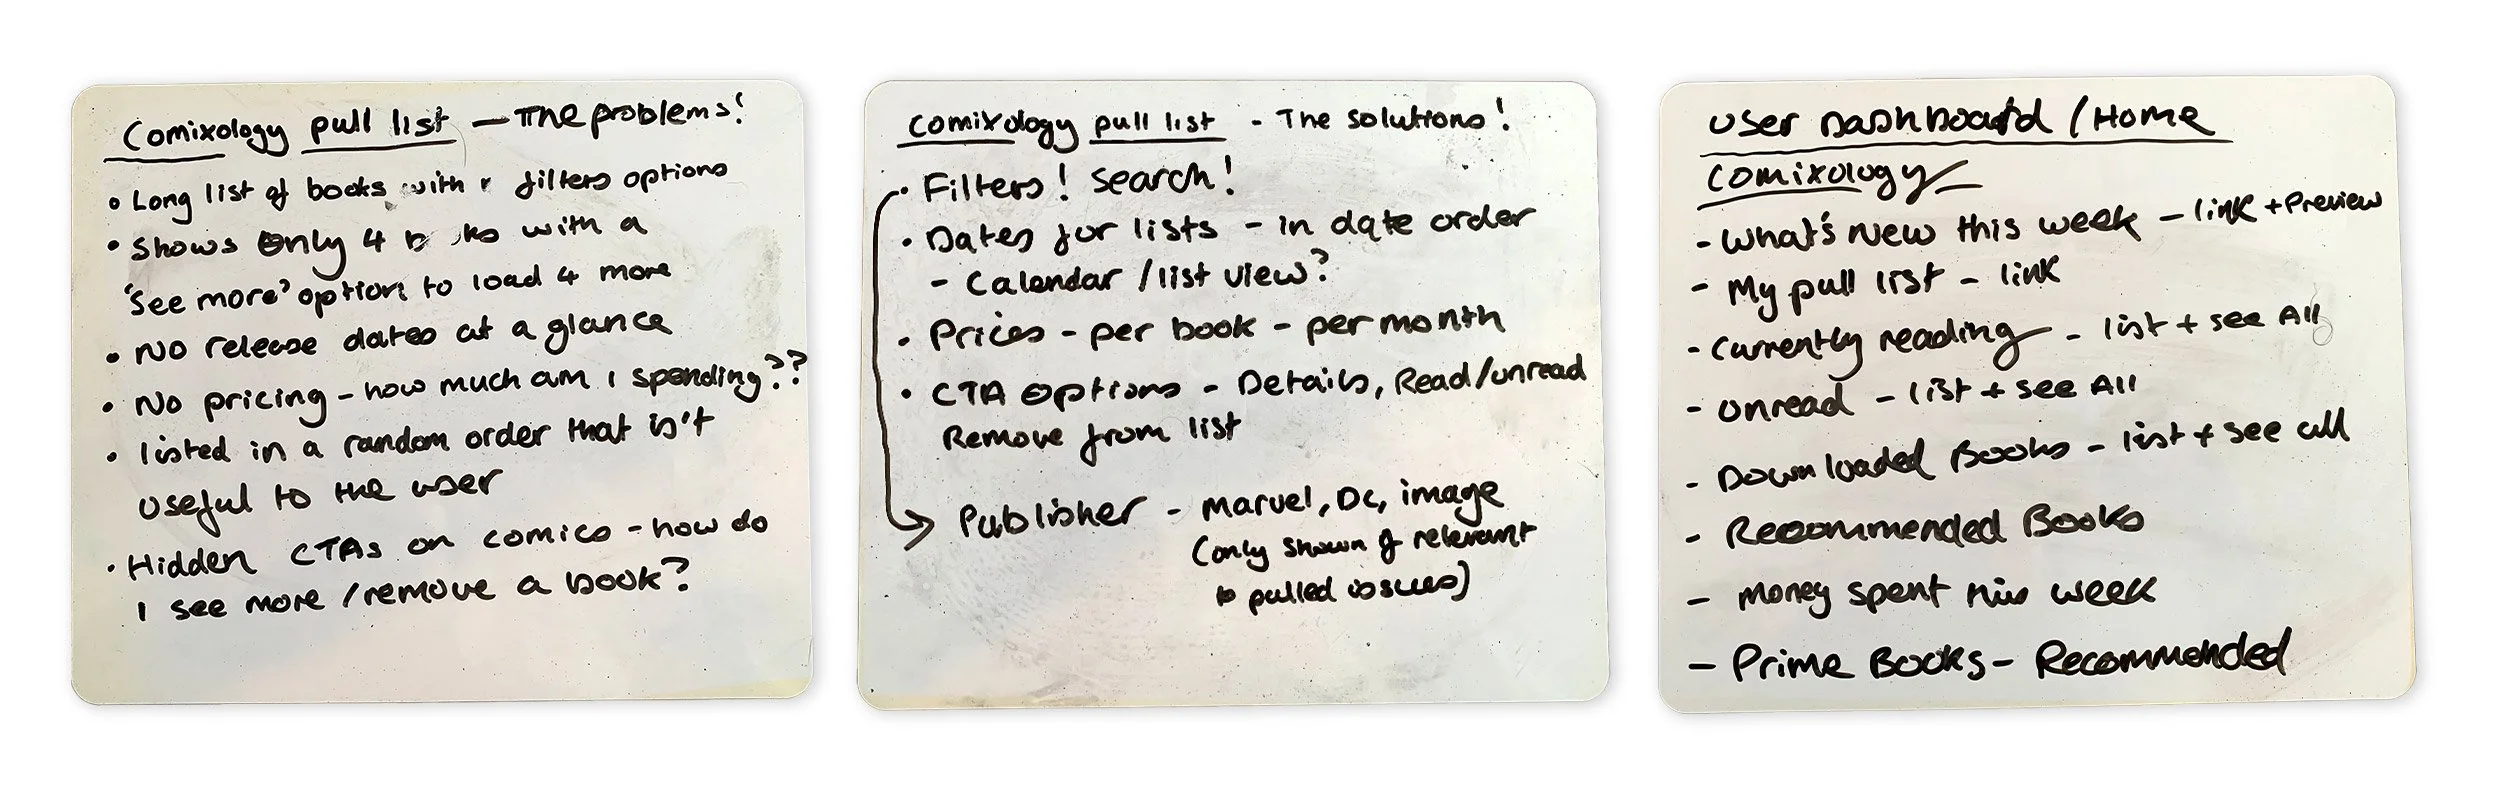 Comixology pull list - The problems!
• Long list of books with filters options
• Shows only 4 with a
'see more' option to load 4 more
• No release dates at a glance
• No pricing - how much am I spending??
• listed in a random order that is't
useful to the user
• Hidden CTAs on comics - how do
I see more / remove a book?
Comixology pull list - The solutions!
• Filters! Search!
• Dates for lists - in date order
- Calendar / list view?
• Prices - per book - per month
• CTA Options - Details, Read/unread
Remove from list
Publisher - Marvel, DC, image
(only shown if relevant
to pulled issues)
User Dashboard / Home
Comixology
- What's New this week - link + Preview
- My pull list - link
- Currently reading - list + see All
- Unread - list + see All
- Downloaded Books - list + see all
- Recommended Books
- Money spent this week
- Prime Books - Recommended